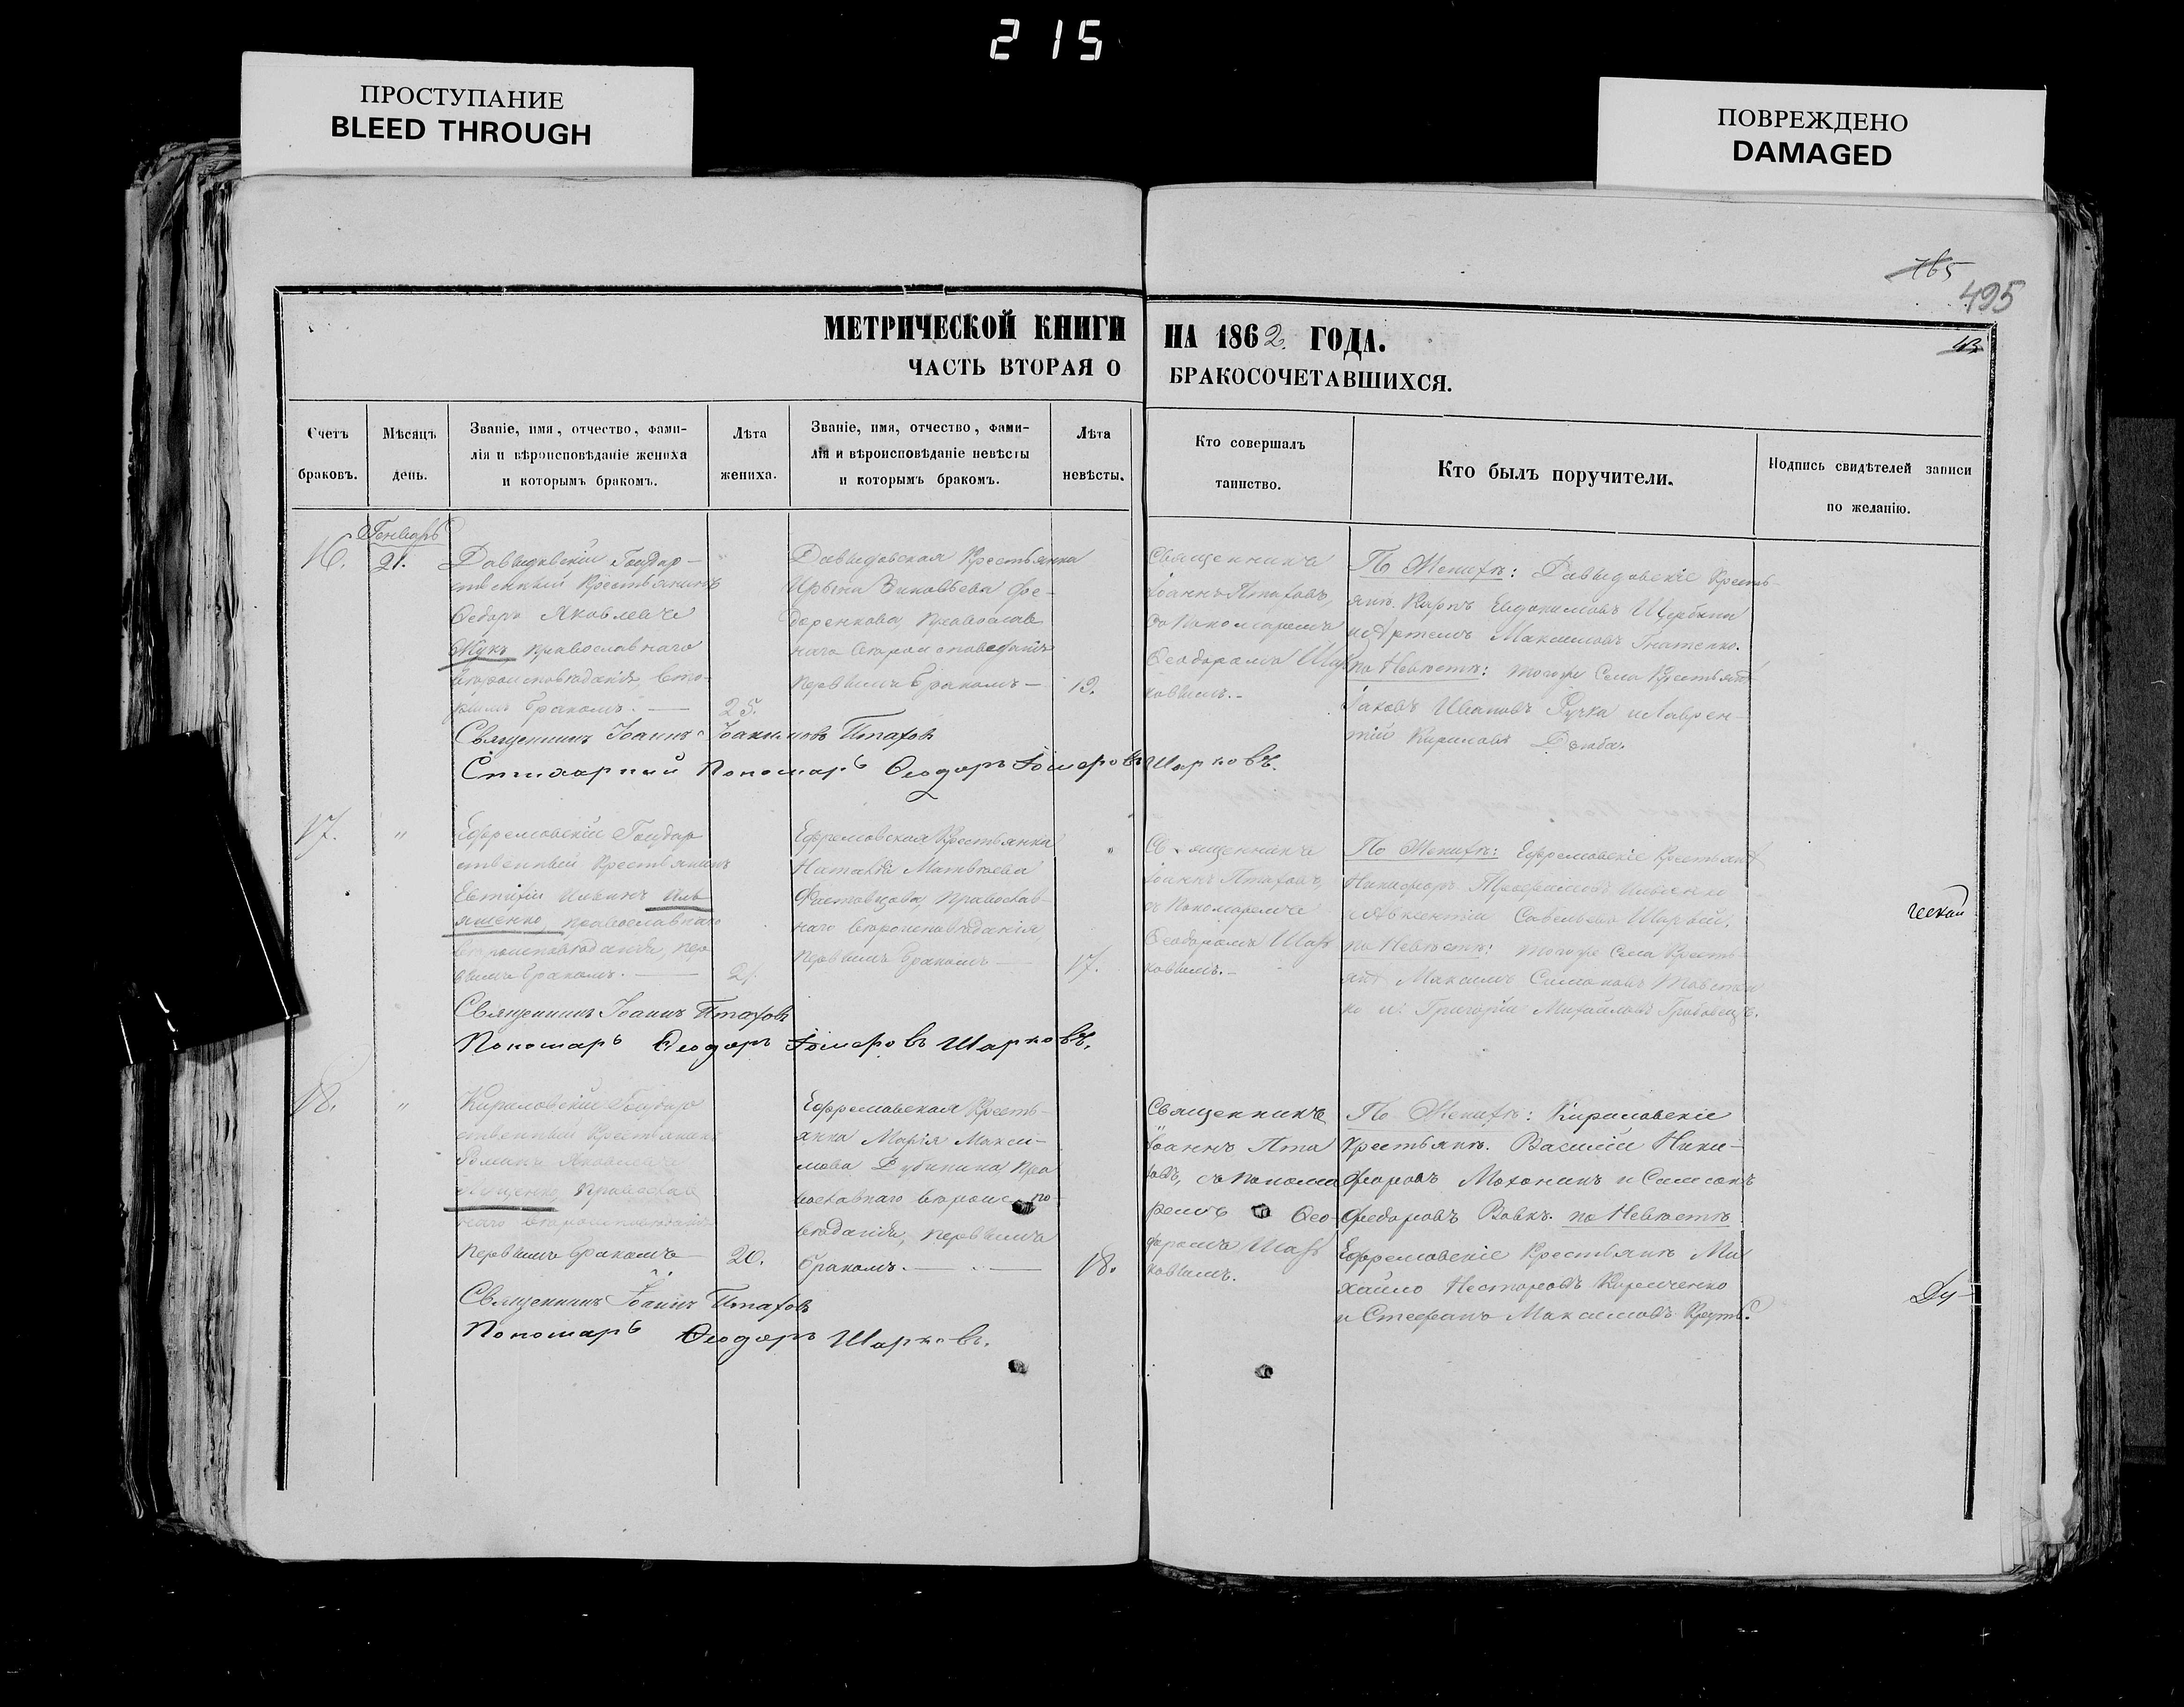 215
ПРОСТУПАНИЕ
BLEED THROUGH
ПОВРЕЖДЕНО
DAMAGED
765
495
МЕТРИЧЕСКОЙ КНИГИ НА 1862 ГОДА.
ЧАСТЬ ВТОРАЯ О БРАКОСОЧЕТАВШИХСЯ.
Счетъ браковъ.
Мѣсяцъ день.
Званіе, имя, отчество, фами-
лія и вѣроисповѣданіе жениха
и которымъ бракомъ.
Лѣта жениха.
Званіе, имя, отчество, фами-
лія и вѣроисповѣданіе невѣсты
и которымъ бракомъ.
Лѣта невѣсты.
Кто совершалъ
таинство.
Кто былъ поручители.
Подпись свидѣтелей записи
по желанію.
Генварь
16.
21.
Давыдовскій Государ-
ственный Крестьянинъ
Ѳедоръ Яковлевъ
Жукъ православнаго
вѣроисповѣданія вто-
рымъ бракомъ.
25.
Давыдовская Крестьянка
Ирина Зиновьева Фе-
доренкова, Православ
наго вѣроисповеданія
первымъ бракомъ
19.
Священникъ
Іоаннъ Птаховъ,
со Пономаремъ
Ѳеодоромъ Шар
ковымъ.
По Женихѣ: Давыдовскіе Кресть-
яне. Карпъ Евдокимовъ Щербина
и Артемъ Максимовъ Гнатенко.
по Невѣстѣ: того же Села Крестьяне
Іаковъ Ивановъ Ручка и Лаврен-
тій Кириловъ Дзюба.
Священникъ Іоаннъ Іоакимовъ Птаховъ
Стихарный Пономарь Ѳеодоръ Шарковъ.
17.
"
Ефремовскій Государ
ственный Крестьянинъ
Евтихій Ильинъ Иль
яшенко, православнаго
вѣроисповѣданія, пер
вымъ бракомъ.
21.
Ефремовская Крестьянка
Наталія Матвѣева
Фастовцова, Православ-
наго вѣроисповѣданія,
первымъ бракомъ
17.
Священникъ
Іоаннъ Птаховъ,
съ Пономаремъ
Ѳеодоромъ Шар
ковымъ.
По Женихѣ: Ефремовскіе Крестьяне
Никифоръ Трофимовъ
и Авксентій Савельевъ
по Невѣстѣ: того же Села Кресть
яне Максимъ Симоновъ Товстен
ко и Григорій Михайловъ
ческой
Священникъ Іоаннъ Птаховъ
Пономарь Ѳеодоръ Шарковъ.
18.
"
Кириловскій Государ
ственный Крестьянинъ
Романъ Яковлевъ
Православ
наго вѣроисповѣданія
первымъ бракомъ
20.
Ефремовская Кресть-
янка Марія Макси-
мова Дубинина Пра
вославнаго вѣроиспо-
вѣданія, первымъ
бракомъ.
18.
Священникъ
Іоаннъ Пта
ховъ, съ Понома
ремъ Ѳео-
доромъ Шар
ковымъ.
По Женихѣ: Кириловскіе
крестьяне. Василій Ники-
форовъ Мохонинъ и Самсонъ
Федоровъ Вовкъ. по Невѣстѣ
Ефремовскіе Крестьяне Ми
хайло Несторовъ Кириченко
и Стефанъ Максимовъ Круть.
Ду-
Священникъ Іоаннъ Птаховъ
Пономарь Ѳеодоръ Шарковъ.